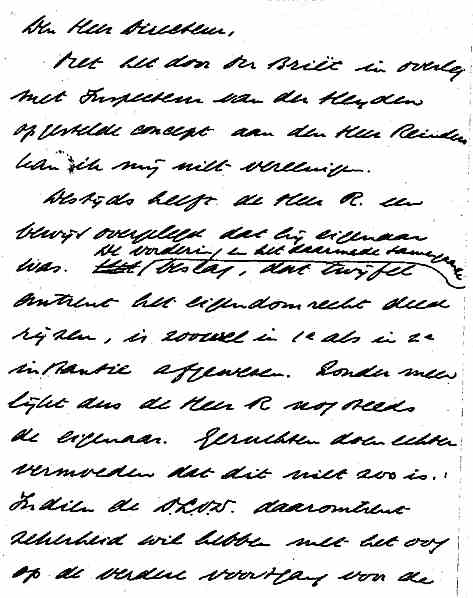 Den Heer Directeur,
Met het door Dr Briët in overleg
met Inspecteur van der Heyden
opgestelde concept aan den Heer Reinders
kan ik mij niet vereenigen.
Destijds heeft de Heer R. een
bewijs overgelegd dat hij eigenaar
De vordering en het daarmede samengaande
was. Het beslag, dat twijfel
omtrent het eigendomsrecht deed
rijzen, is zoowel in 1e als in 2e
instantie afgewezen. Zonder meer
lijkt dus de Heer R nog steeds
de eigenaar. Geruchten doen echter
vermoeden dat dit niet zoo is.
Indien de D.L.O.W. daaromtrent
zekerheid wil hebben met het oog
op de verdere voortgang voor de